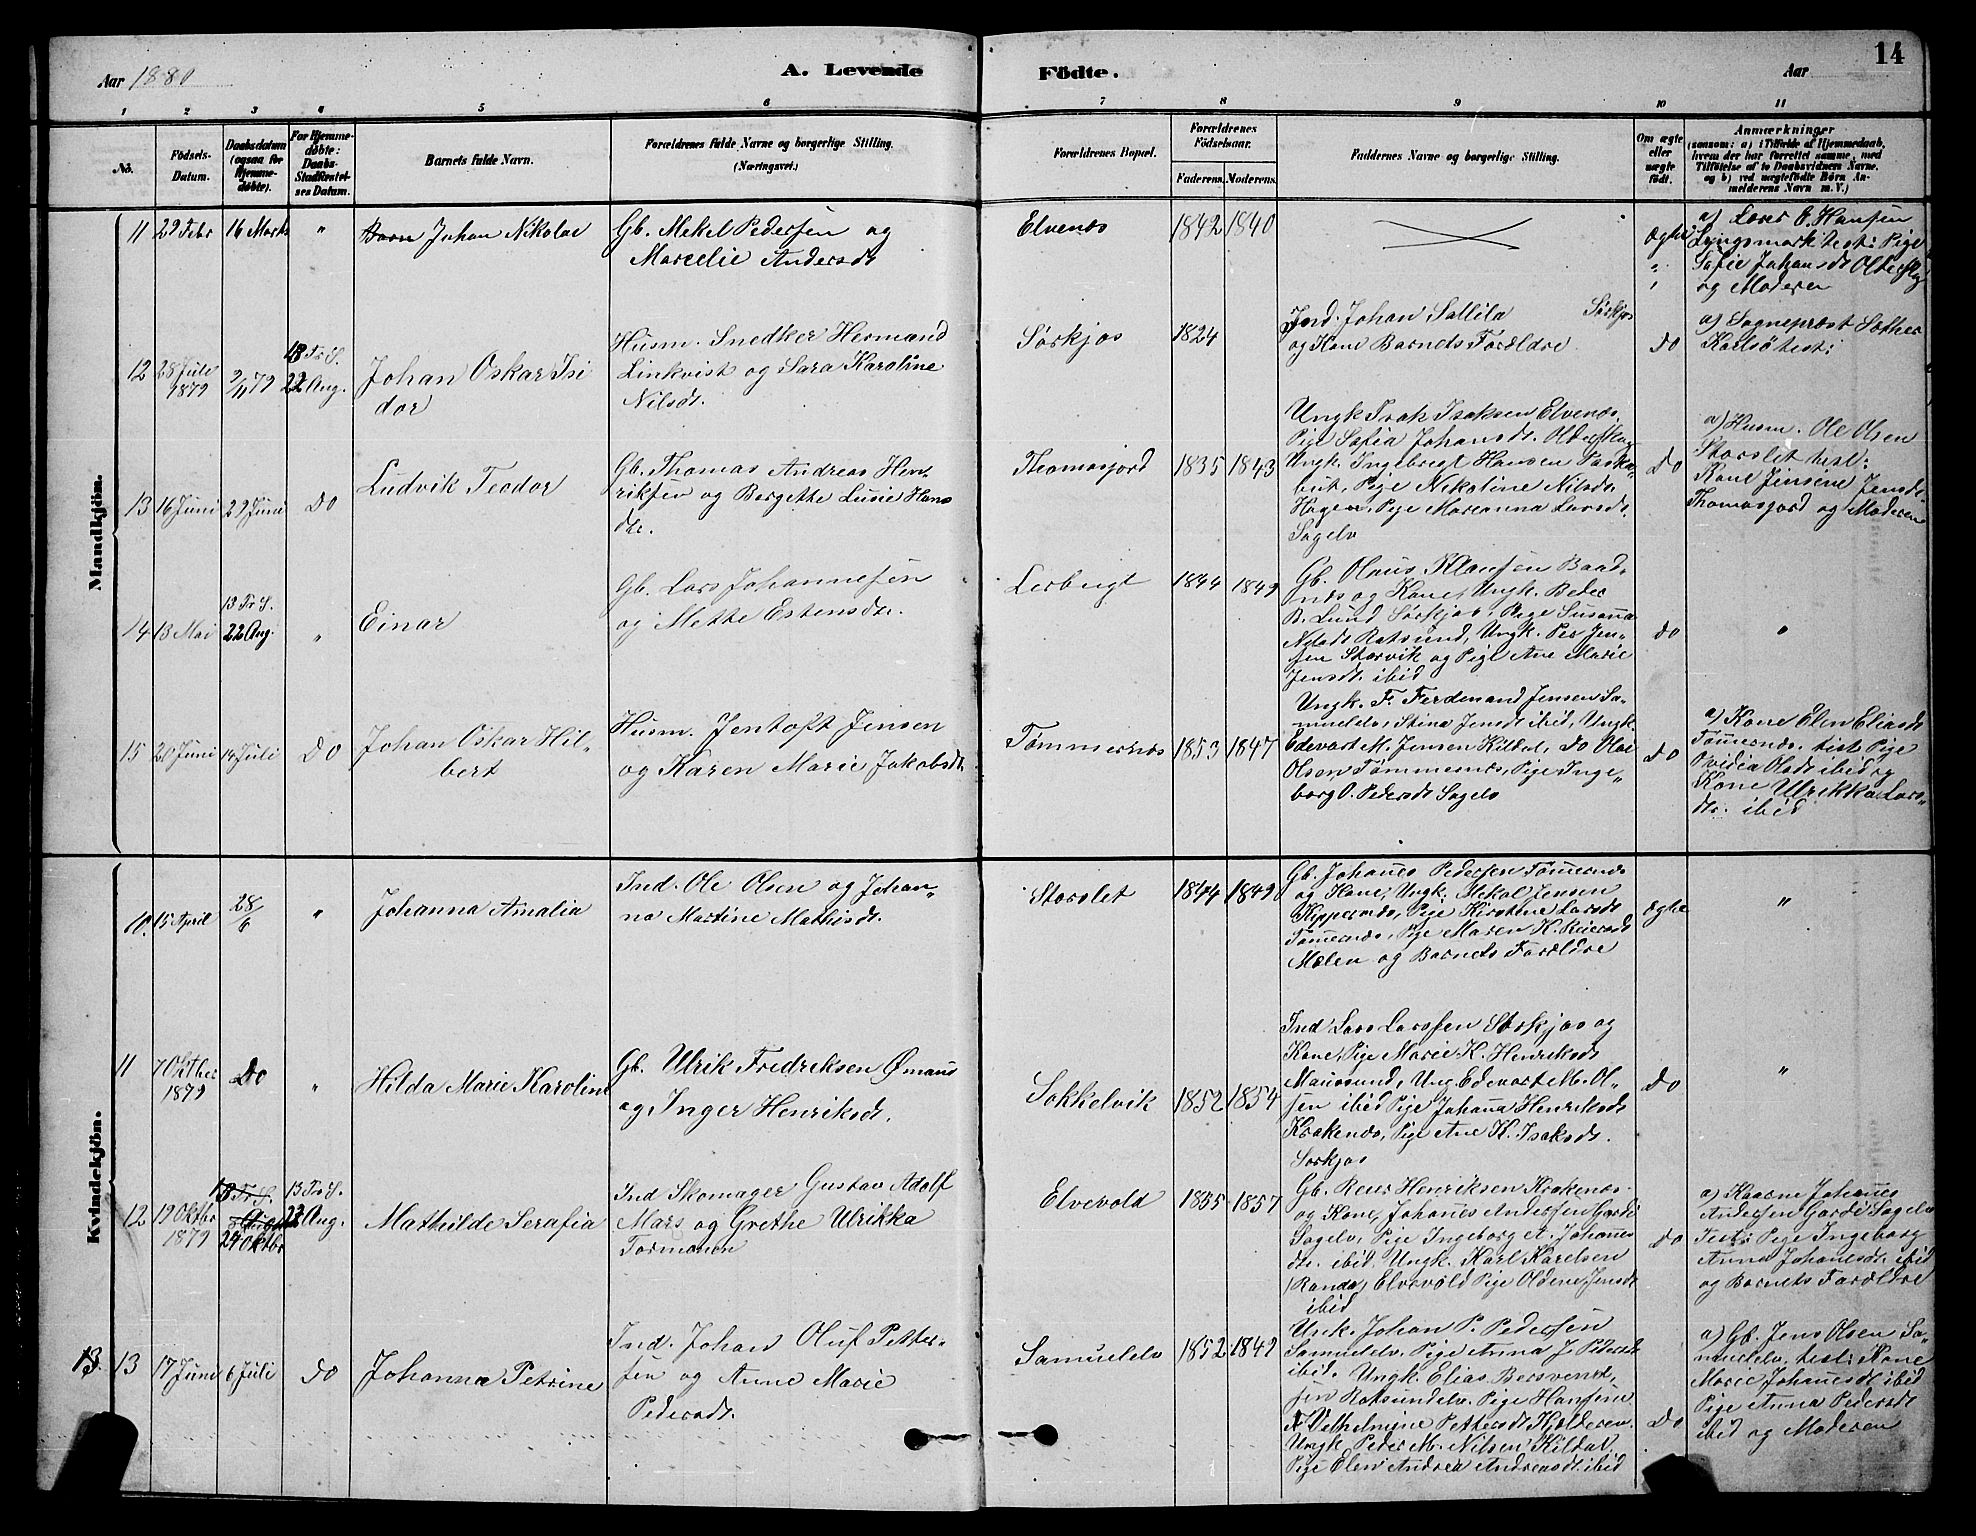 Aar 1880
A. Levende Födte.
Aar
14
1 2 3 4 5 6 7 8 9 10 11
No.
Födsels-
Datum.
Daabsdatum
(ogsaa for
Hjemme-
døbte).
For Hjemme-
døbte:
Daabs-
Stadfæstel-
ses Datum.
Barnets fulde Navn.
Forældrenes fulde Navne og borgerlige Stilling.
(Næringsvei.)
Forældrenes Bopæl.
Forældrenes
Fødselsaar.
Faderens. Moderens.
Faddernes Navne og borgerlige Stilling.
Om ægte
eller
uægte
født.
Anmærkninger
(saasom: a) i Tilfælde af Hjemmedaab,
hvem der har forrettet samme, med
Tilføielse af to Daabsvidners Navne,
og b) ved uægtefødte Børn An-
melderens Navn m. V.)
Mandkjön.
11 29 Febr 16 Marts " Johan Nikolai
Gb. Mekel Pedersen og
Marcelie Andersdt
Elvenes 1842 1840
ægte
a) Lærer O. Hansen
Lyngsmark test: Pige
Safie Johansdt Olderskog
og Moderen
12 28 Juli 1879 9/11 79 13 Tr. S. 22 Aug.
Johan Oskar Isi
dor
Husm. Snedker Hermand
Linkvist og Sara Karoline
Nilsdt.
Sørkjos 1824
Ind. Johan Sallila Sørkjos
og Kone Barnets Forældre
Do
a) Sogneprest Sother
Karlsö test:
13 16 Juni 29 Juni Do
Ludvik Teodor
Gb. Thomas Andreas Hen-
riksen og Bergethe Lusie Hans
dtr.
Thomasjord 1835 1843
Ungk. Isak Isaksen Elvenes,
Pige Safia Johansdt. Olderskog
Ungk. Ingebrigt Hansen
but, Pige Nikoline Nilsdt.
Hagen, Pige Marianna Larsdt.
Sagelv
Do
a) Husm. Ole Olsen
Storslet test:
Kone Jensene Jensdt
Thomasjord og Moderen
14 13 Mai 13 Tr. S. 22 Aug. "
Einar
Gb. Lars Johannesen
og Mette Estensdtr.
Lerbugt 1844 1849
Gb. Olaus Klausen Baad-
næs og Kone, Ungk. Peder
B. Lund Sørkjos, Pige Susanna
Nilsdt Rotsund, Ungk. Per Jen-
sen Storvik og Pige Ane Marie
Jensdt. ibid
Do "
15 20 Juni 14 Juli Do
Johan Oskar Hil-
bert
Husm. Jentoft Jensen
og Karen Marie Jakobsdt.
Tömmernes 1853 1847
Ungk. F. Ferdenand Jensen Sa-
muelelv, Stina Jensdt ibid, Ungk.
Edevart M. Jensen Kildal, Do Ole
Olsen Tömmernes, Pige Inge-
borg O. Pedersdt Sagelv
Do
a) Kone Elen Eliasdt
Tömernes. test: Pige
Ovidia Olsdt ibid og
Kone Ulrikka Lars-
dtr. ibid
Kvindekjön.
10. 15 April 28/6 "
Johanna Amalia
Ind. Ole Olsen og Johan-
na Martine Mathisdt.
Storslet 1844 1849
Gb. Johanes Pedersen Tömernes
og Kone, Ungk. Mikal Jensen
Kippernes, Pige Kirstine Larsdt
Tömernes, Pige Maren K. Reiersdt
Mælen og Barnets Forældre
ægte "
11 7 Oktber 1879 Do "
Hilda Marie Karoline
Gb. Ulrik Fredriksen Ømaus
og Inger Henriksdt.
Sokkelvik 1852 1854
Ind Lars Larssen Storkjos og
Kone, Pige Marie K. Henriksdt
Maursund, Ung. Edevart M. Ol-
sen ibid Pige Johana Henriksdt
Krakenes, Pige Ane K. Isaksdt.
Sørkjos
Do "
12 19 Oktbr 1879 13 Tr. S. 22 Aug 24 Oktbr 13 Tr. S. 22 Aug.
Mathilde Serafia
Ind Skomager Gustav Adolf
Mars og Grethe Ulrikka
Tormann
Elvevold 1835 1857
Gb. Reier Henriksen Krakenes
og Kone, Johanes Andersen Garde
Sagelv, Pige Ingeborg A. Johanes
dtr. ibid, Ungk. Karl Karelsen
(Randa) Elvevold Pige Oldene Jensdt
ibid
Do
a) Kaarne Johanes
Andersen Garde Sagelv
Test: Pige Ingeborg
Anna Johanesdt. ibid
og Barnets Forældre
13. 13 17 Juni 6 Juli Do
Johanna Petrine
Ind. Johan Oluf Petter-
sen og Anne Marie
Pedersdt.
Samuelelv 1852 1849
Ungk. Johan P. Pedersen
Samuelelv, Pige Anna J. Pedersdt
ibid. Ungk. Elias Bersvend-
sen Rotsundelv. Pige Hansine
Vilhelmine Pettersdt Kjelderen.
Ungk. Peder M. Nilsen Kildal
Pige Elen Andrea Andreasdt. ibid
Do
a) Gb. Jens Olsen Sa-
muelelv. test: Kone
Marie Johanesdt ibid
Pige Anna Pedersdt
ibid og Moderen